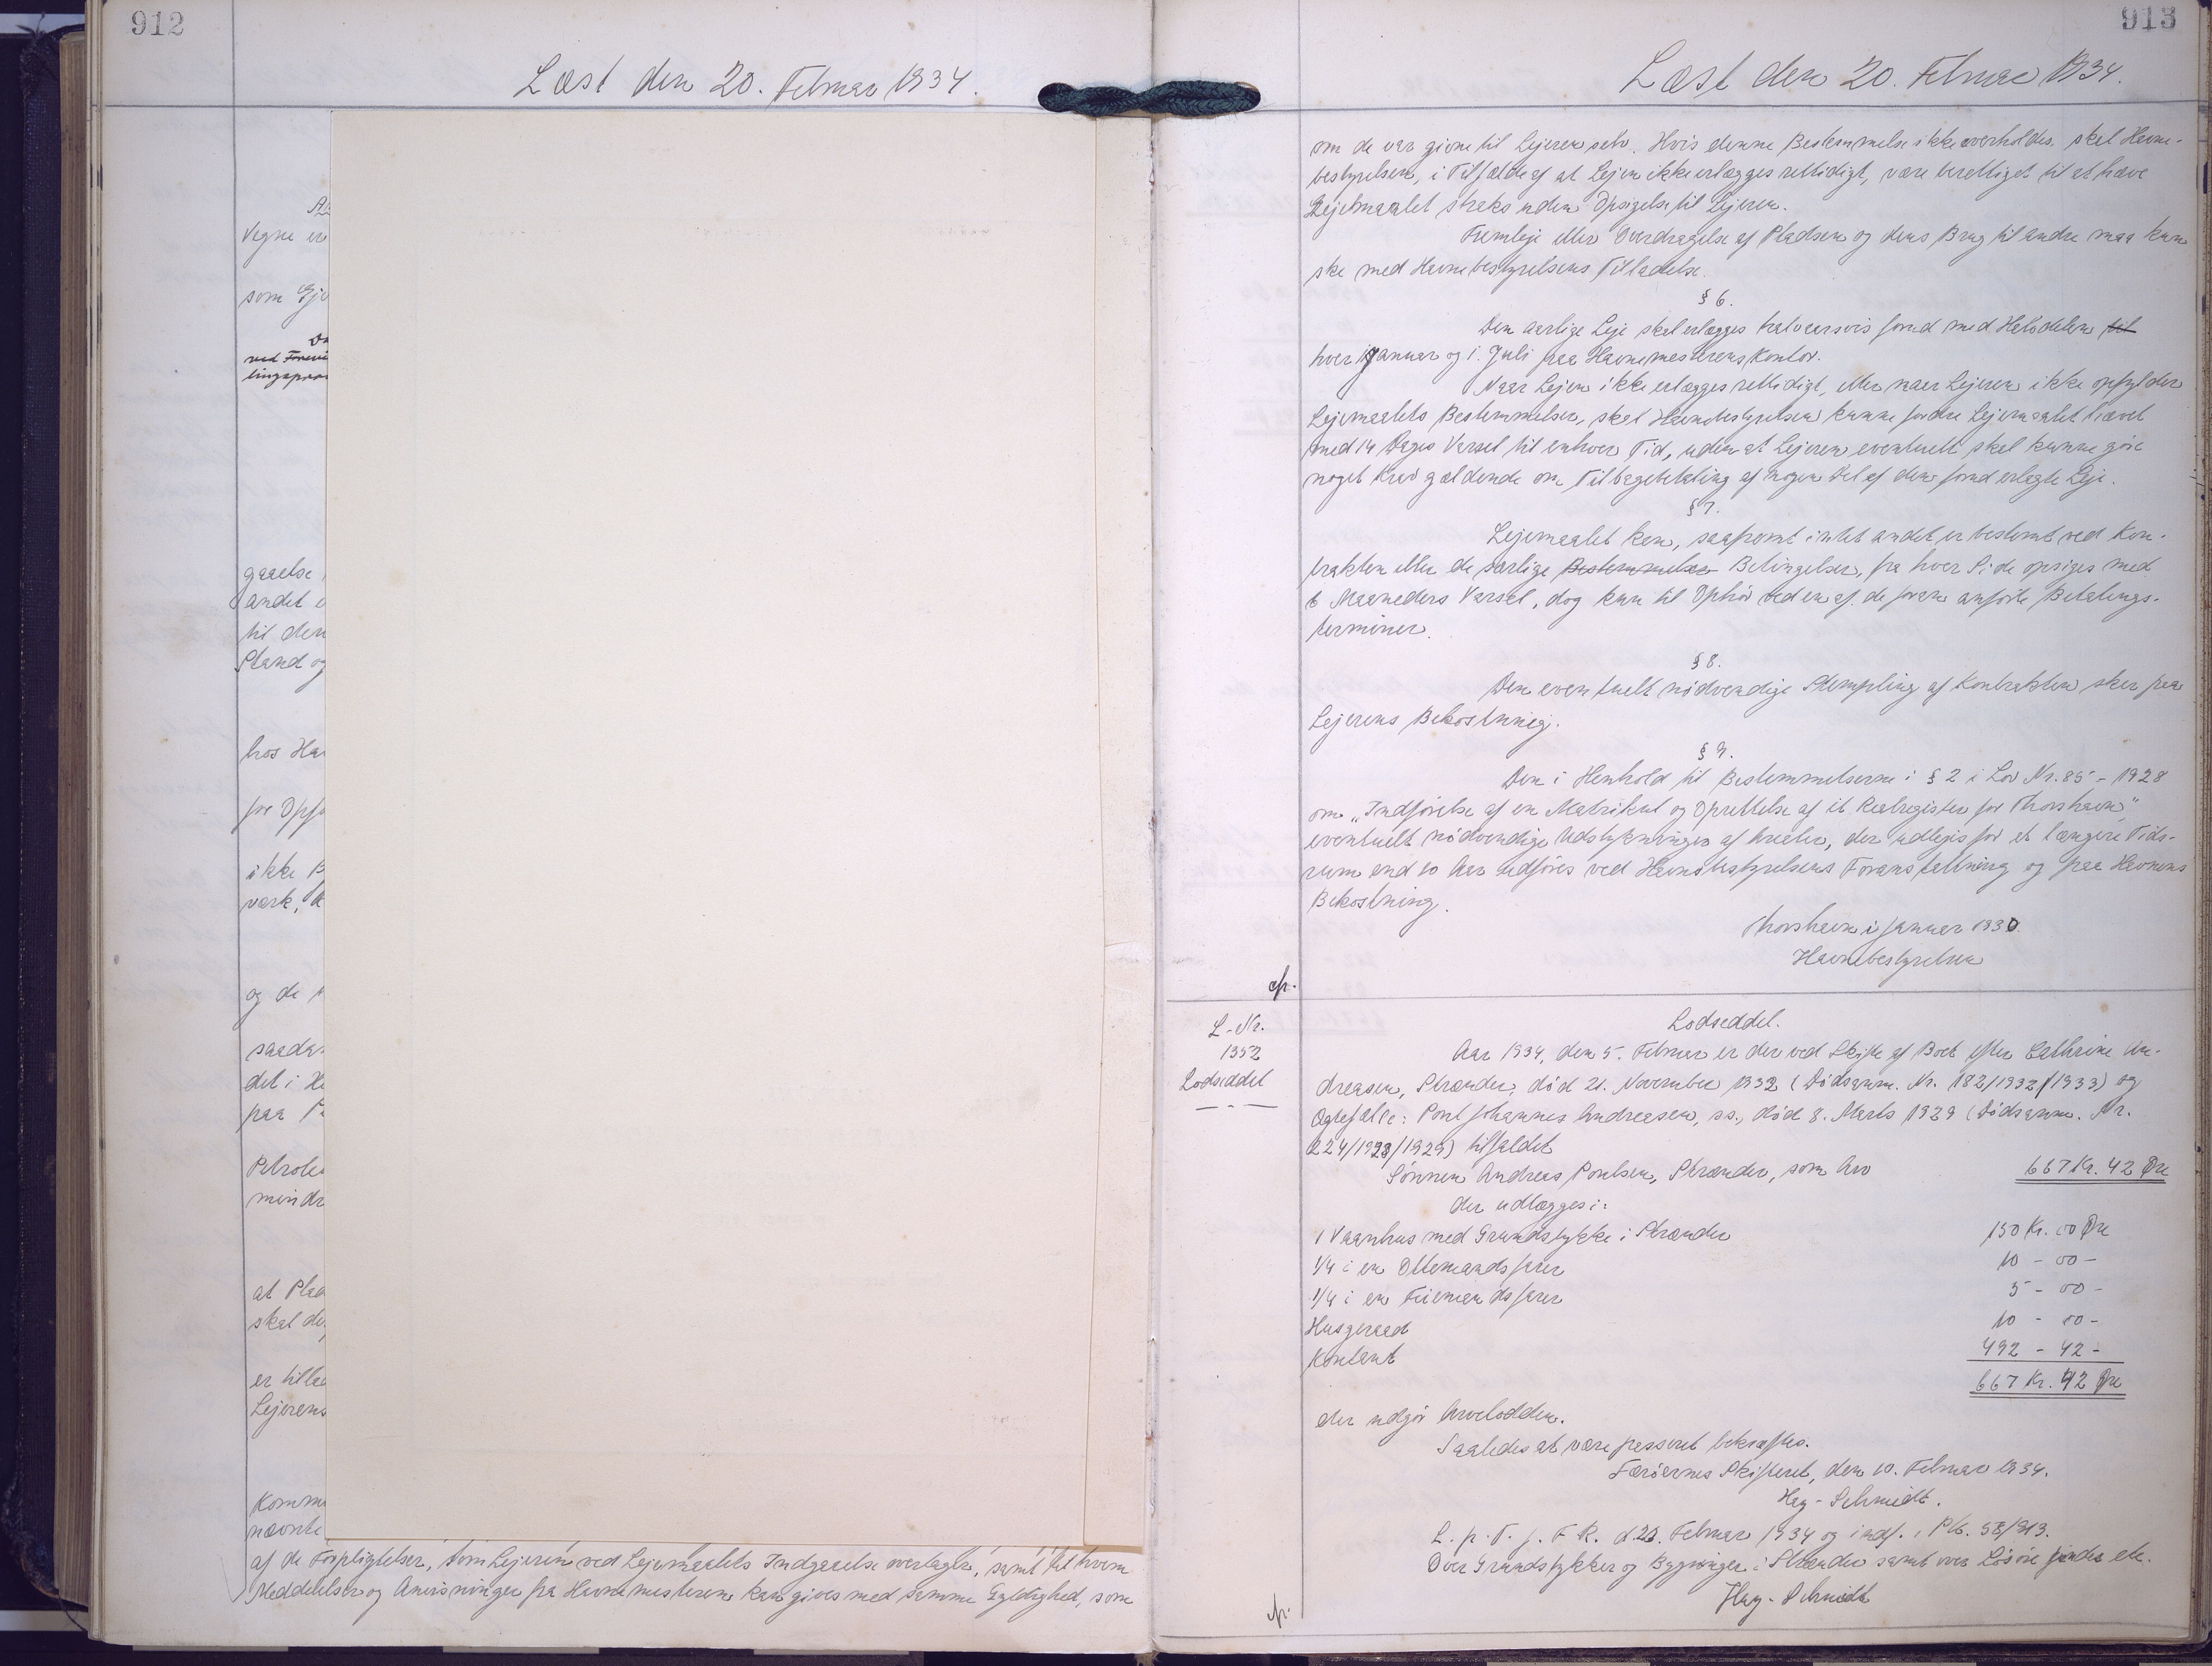 912
Læst den 20. Februar 1934.
Vegne er
som Eje
ved
lingspro
gaaelse
andet
til den
Stand og
hos Ha
for Opf
ikke B
værk,
og de
saada
det i H
paa
Petrole
mindr
at Plad
skal de
er tilla
Lejerens
Komm
nævnte
af de Forpligtelser, som Lejeren ved Lejemaalets Indgaaelse overtager, samt til hvem
Meddelelser og Anvisninger fra Havnemesteren kan gives med samme Gyldighed, som
913
Læst den 20. Februar 1934.
om de var givne til Lejeren selv. Hvis denne Bestemmelse ikke overholdes, skal Havne-
bestyrelsen, i Tilfælde af at Lejen ikke erlægges rettidigt, være berettiget til at hæve
Lejemaalet straks uden Opsigelse til Lejeren.
Fremleje eller Overdragelse af Pladsen og dens Brug til andre maa kun
ske med Havnebestyrelsens Tilladelse.
§ 6.
Den aarlige Leje skal erlægges halvaarsvis forud med Halvdelen til
hver 1. Januar og 1. Juli paa Havnemesterens Kontor.
Naar Lejen ikke erlægges rettidigt, eller naar Lejeren ikke opfylder
Lejemaalets Bestemmelser, skal Havnebestyrelsen kunne fordre Lejemaalet hævet
med 14 Dages Varsel til enhver Tid, uden at Lejeren eventuelt skal kunne gøre
noget Krav gældende om Tilbagebetaling af nogen Del af den forud erlagte Leje.
§ 7.
Lejemaalet kan, saafremt intet andet er bestemt ved Kon-
trakten eller de særlige Bestemmelser Betingelser, fra hver Side opsiges med
6 Maaneders Varsel, dog kun til Ophør ved en af de foran anførte Betalings-
terminer.
§ 8.
Den eventuelt nødvendige Stempling af Kontrakten sker paa
Lejerens Bekostning.
§ 9.
Den i Henhold til Bestemmelserne i § 2 i Lov Nr. 85 - 1928
om "Indførelse af en Matrikul og Oprettelse af et Realregister for Thorshavn"
eventuelt nødvendige Udstykninger af Arealer, der udlejes for et længere Tids-
rum end 10 Aar udføres ved Havnebestyrelsens Foranstaltning og paa Havnens
Bekostning.
Thorshavn i Januar 1930.
Havnebestyrelsen
L-Nr.
1352
Lodseddel
Lodseddel.
Aar 1934, den 5. Februar er der ved Skifte af Boet efter Cathrine An-
dreasen, Strænder, død 21. November 1932 (Dødsanm. Nr. 182/1932/1933) og
Ægtefælle: Poul Johannes Andreasen, ss., død 8. Marts 1929 (Dødsanm. Nr.
224/1928/1929) tilfaldet
Sønnen Andreas Poulsen, Strænder, som Arv 667 Kr. 42 Øre
der udlægges i:
1 Vaanhus med Grundstykke i Strænder 150 Kr. 00 Øre
1/4 i en Ottemandsfarer 10 - 00 -
1/4 i en Firemandsfarer 5 - 00 -
Husgeraad 10 - 00 -
Kontant 492 - 42 -
667 Kr. 42 Øre
der udgør Arvelodden.
Saaledes at være passeret bekræftes.
Færøernes Skifteret, den 10. Februar 1934.
Hey-Schmidt.
L. p. T. f. F. R. d. 20. Februar 1934 og indf. i Pk. 58/913.
Over Grundstykker og Bygninger i Strænder samt over Løsøre findes etc.
Hey-Schmidt